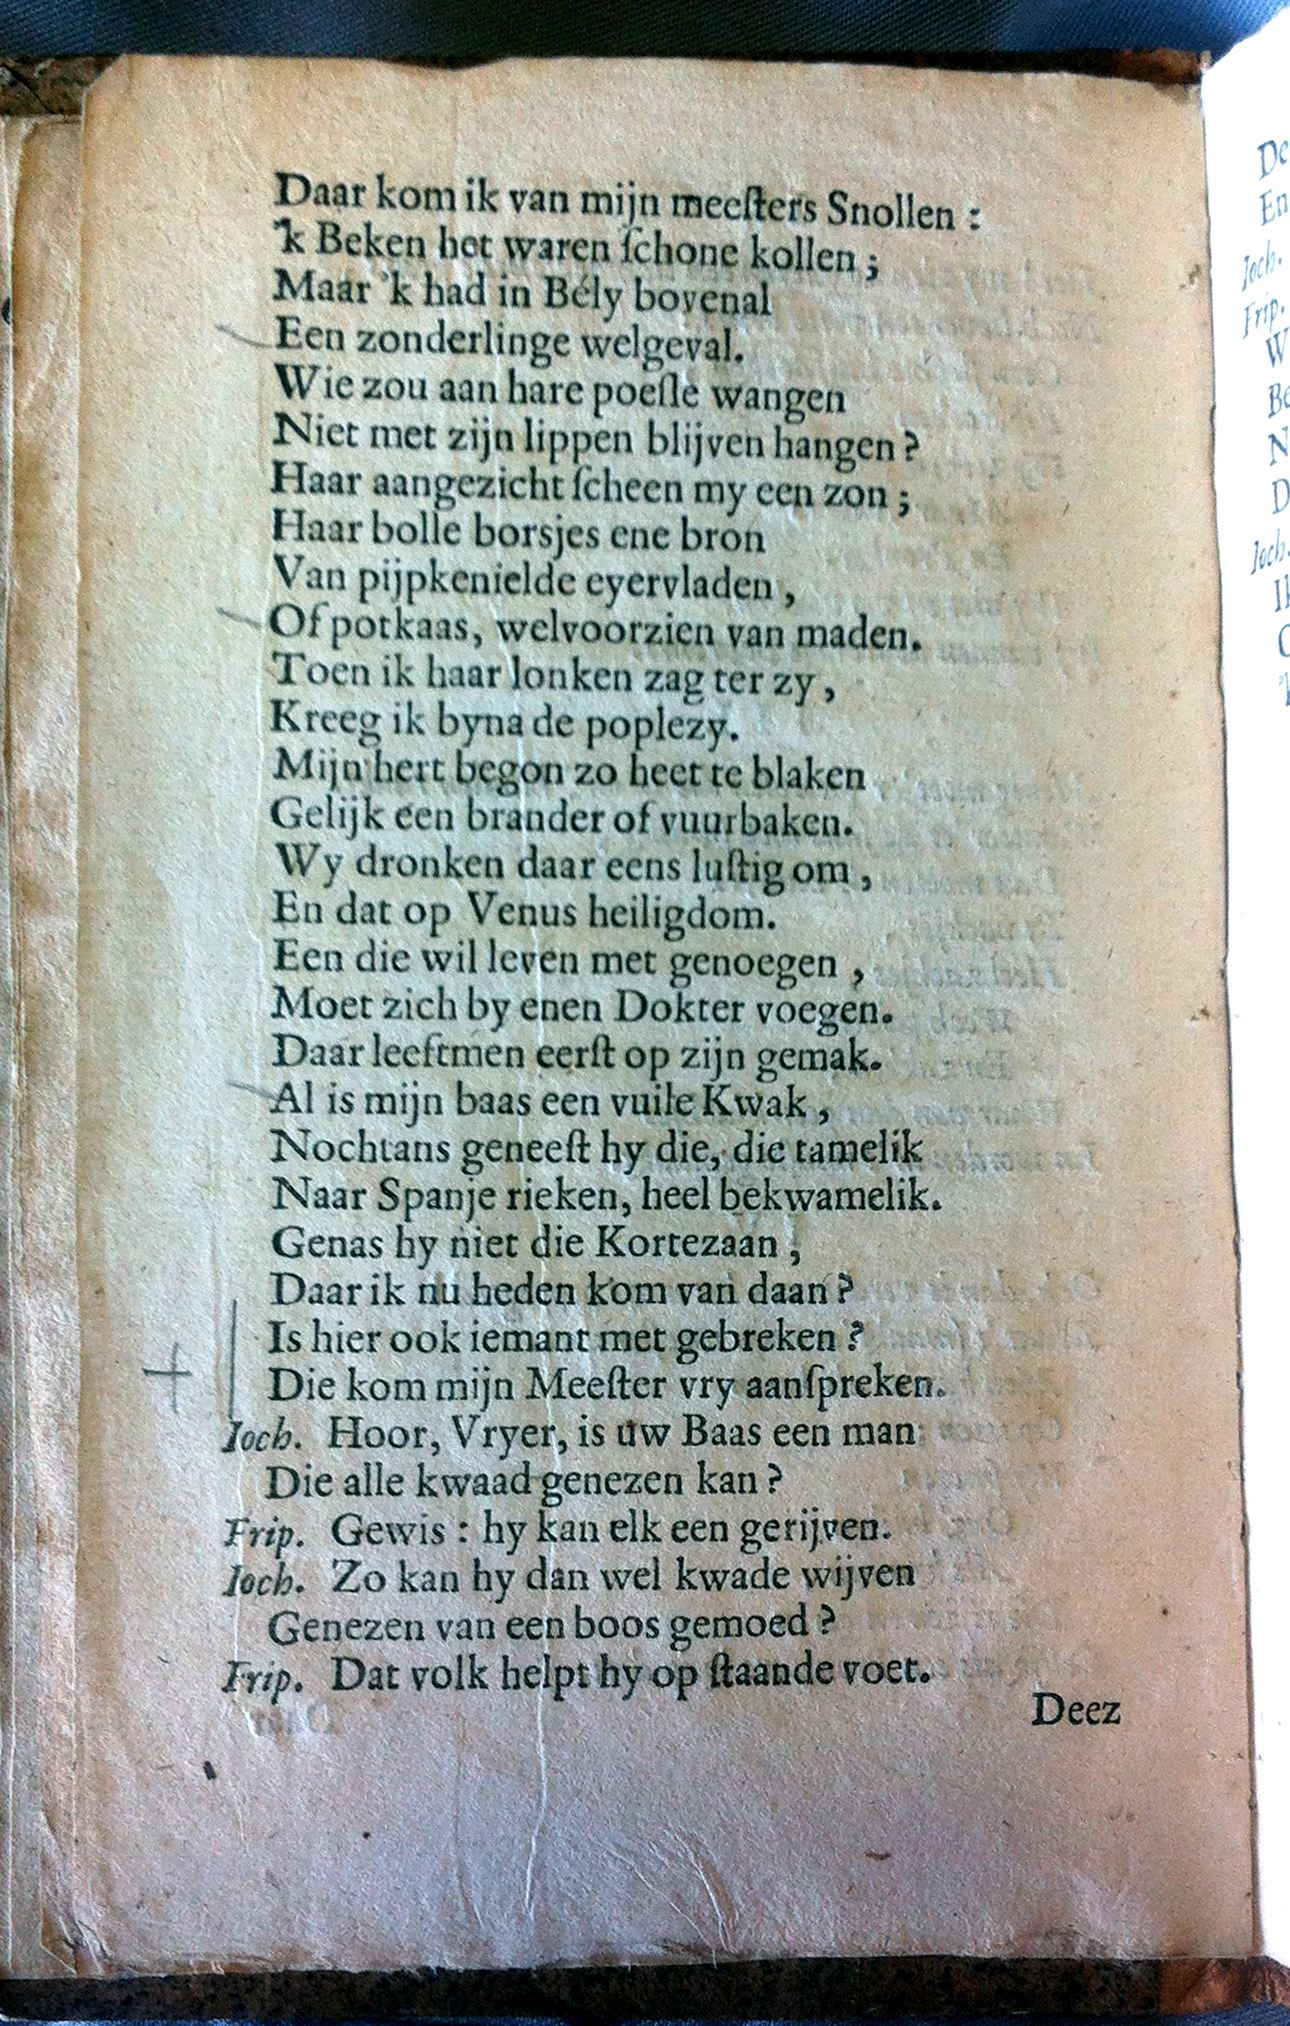 Daar kom ik van mijn meeſters Snollen :
'k Beken het waren ſchone kollen ;
Maar 'k had in Bély bovenal
Een zonderlinge welgeval.
Wie zou aan hare poeſle wangen
Niet met zijn lippen blijven hangen ?
Haar aangezicht ſcheen my een zon ;
Haar bolle borsjes ene bron
Van pijpkenielde eyervladen ,
Of potkaas, welvoorzien van maden.
Toen ik haar lonken zag ter zy ,
Kreeg ik byna de poplezy.
Mijn hert begon zo heet te blaken
Gelijk een brander of vuurbaken.
Wy dronken daar eens luſtig om ,
En dat op Venus heiligdom.
Een die wil leven met genoegen ,
Moet zich by enen Dokter voegen.
Daar leeftmen eerſt op zijn gemak.
Al is mijn baas een vuile Kwak ,
Nochtans geneeſt hy die, die tamelik
Naar Spanje rieken, heel bekwamelik.
Genas hy niet die Kortezaan ,
Daar ik nu heden kom van daan ?
Is hier ook iemant met gebreken ?
Die kom mijn Meeſter vry aanſpreken.
Joch. Hoor, Vryer, is uw Baas een man
Die alle kwaad genezen kan ?
Frip. Gewis : hy kan elk een gerijven.
Joch. Zo kan hy dan wel kwade wijven
Genezen van een boos gemoed ?
Frip. Dat volk helpt hy op ſtaande voet.
Deez
De
En
Joch.
Frip.
W
Be
N
D
Joch.